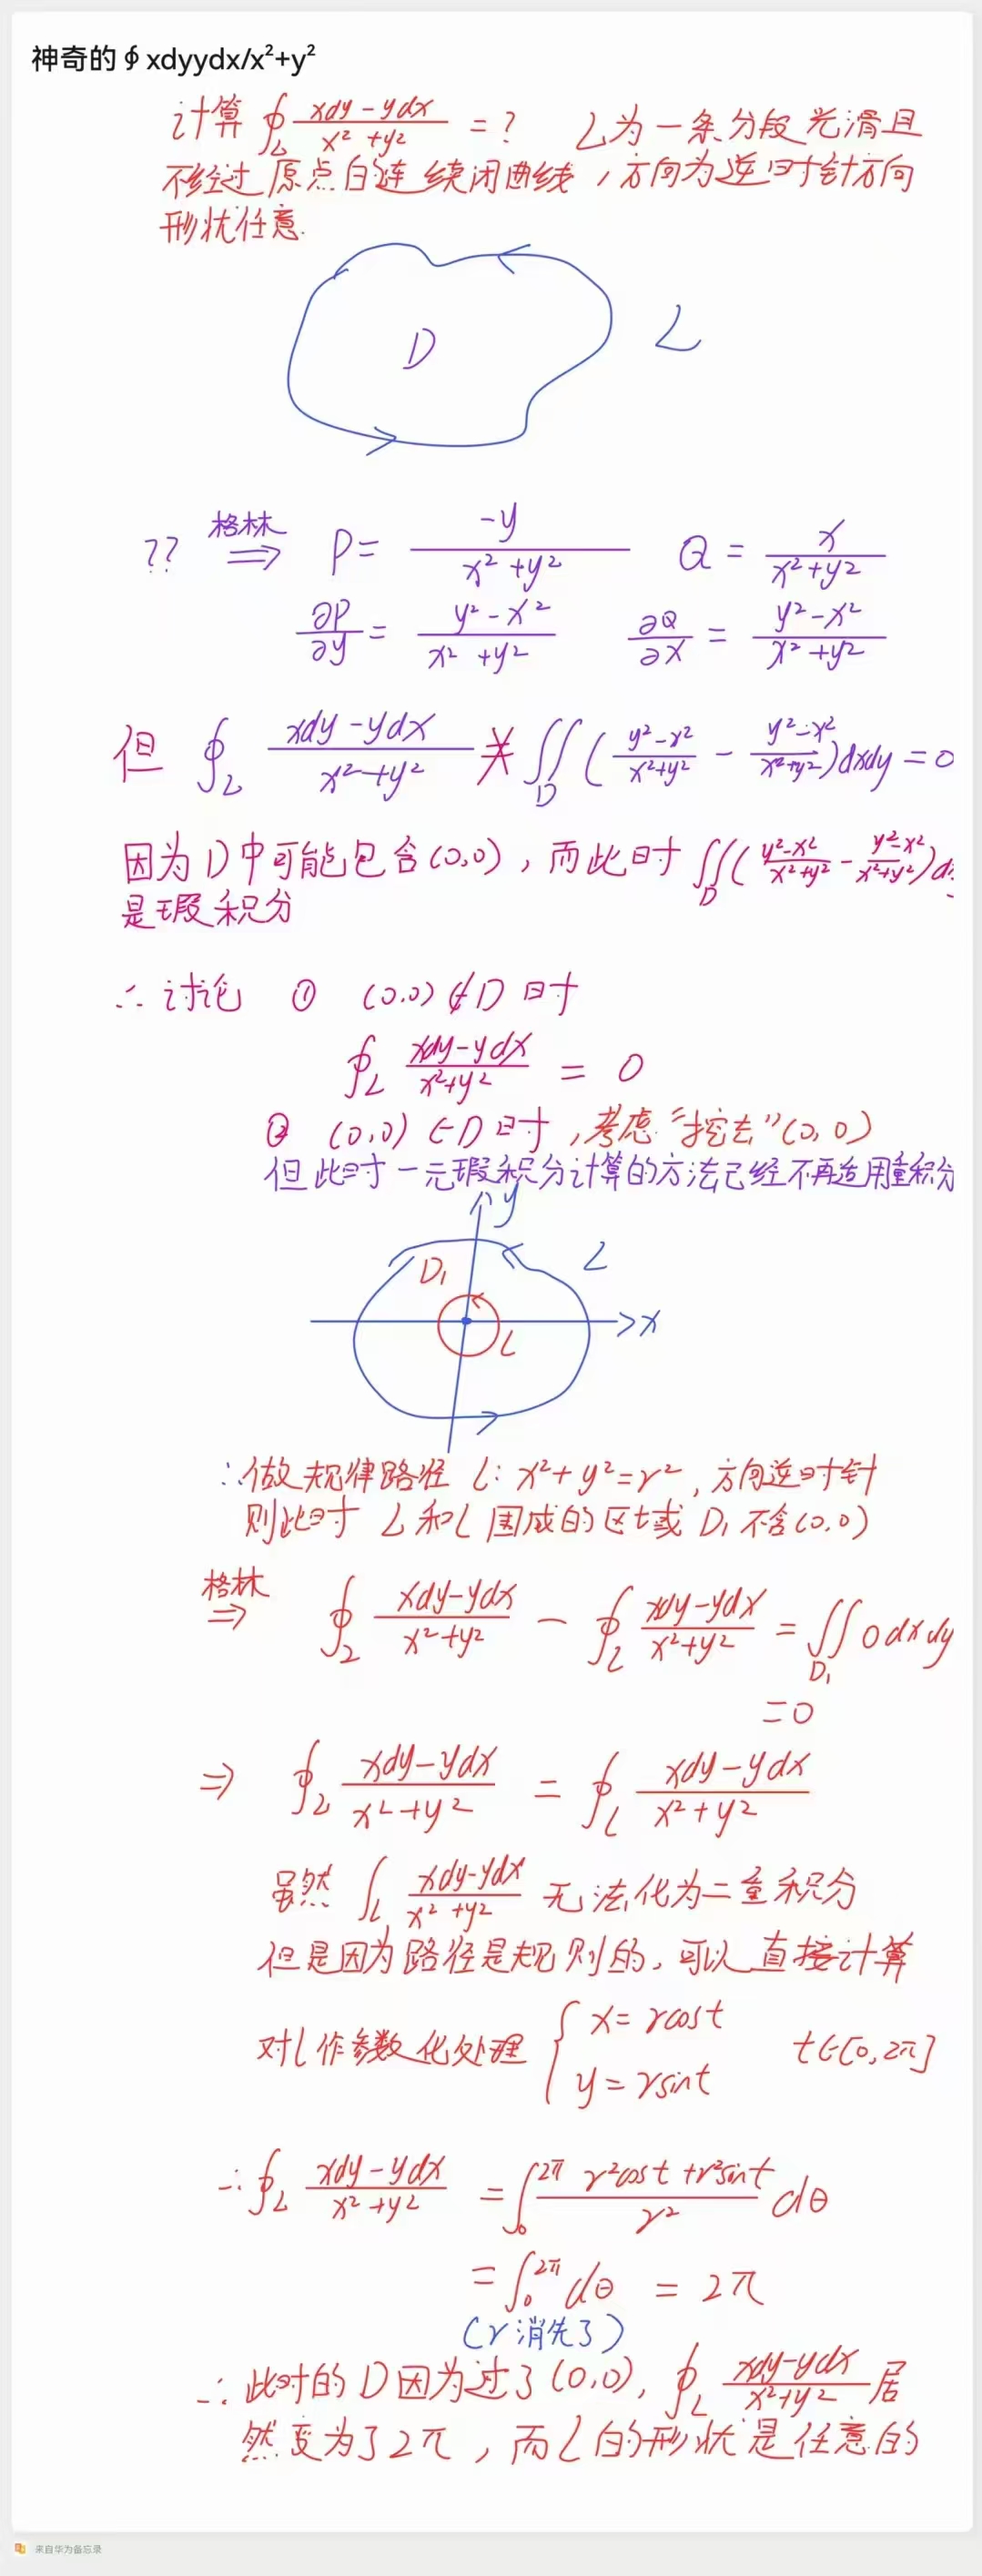 神奇的∮xdyydx/x²+y²
计算 ∮_L (xdy-ydx)/(x²+y²) = ? L为一条分段光滑且
不经过原点的连续闭曲线，方向为逆时针方向
形状任意.
D L
?? 格林⇒ P= -y/(x²+y²) Q = x/(x²+y²)
∂P/∂y = (y²-x²)/(x²+y²) ∂Q/∂x = (y²-x²)/(x²+y²)
但 ∮_L (xdy-ydx)/(x²+y²) ≠ ∬_D ((y²-x²)/(x²+y²) - (y²-x²)/(x²+y²))dxdy=0
因为D中可能包含(0,0)，而此时 ∬_D ((y²-x²)/(x²+y²) - (y²-x²)/(x²+y²))d
是瑕积分
∴讨论 ① (0,0)∉D时
∮_L (xdy-ydx)/(x²+y²) = 0
② (0,0)∈D时，考虑“挖去”(0,0)
但此时一元瑕积分计算的方法已经不再适用重积分
y
D₁ L
x
l
∴做规律路径 l: x²+y²=r²，方向逆时针
则此时 L和l围成的区域 D₁不含(0,0)
格林⇒ ∮_L (xdy-ydx)/(x²+y²) - ∮_l (xdy-ydx)/(x²+y²) = ∬_D₁ 0dxdy
=0
⇒ ∮_L (xdy-ydx)/(x²+y²) = ∮_l (xdy-ydx)/(x²+y²)
虽然 ∫_l (xdy-ydx)/(x²+y²) 无法化为二重积分
但是因为路径是规则的，可以直接计算
对l作参数化处理 { x=rcost y=rsint t∈[0,2π]
∴∮_L (xdy-ydx)/(x²+y²) = ∫₀^2π (r²cost+r²sint)/r² dθ
=∫₀^2π dθ = 2π
(r消失了)
∴此时的D因为过了(0,0)，∮_L (xdy-ydx)/(x²+y²) 居
然变为了2π，而L的形状是任意的
来自华为备忘录